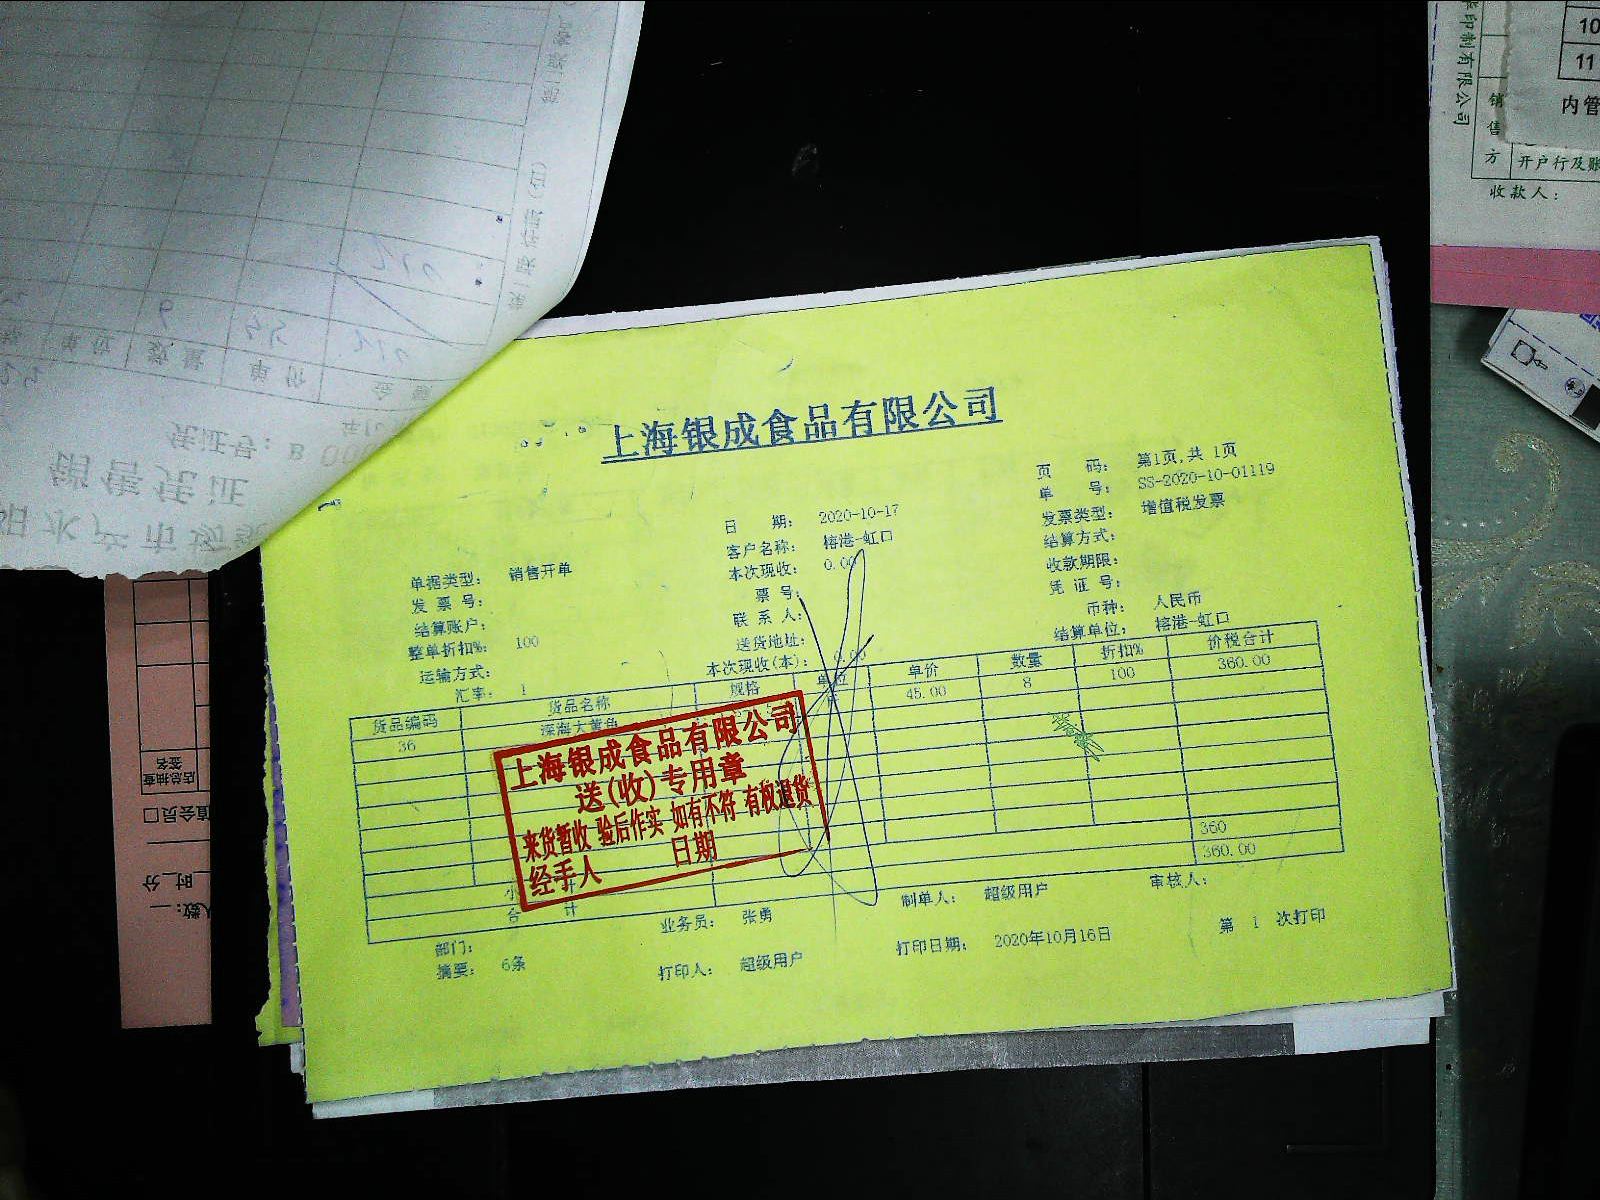 上海银成食品有限公司
页 码： 第1页,共 1页
单 号： SS-2020-10-01119
日 期： 2020-10-17
发票类型： 增值税发票
客户名称： 榕港-虹口
结算方式：
单据类型： 销售开单
本次现收： 0.00
收款期限：
发 票 号：
票 号：
凭 证 号：
结算账户：
联 系 人：
币种： 人民币
整单折扣%： 100
送货地址：
结算单位： 榕港-虹口
运输方式：
本次现收(本)： 0.00
汇率： 1
货品编码 货品名称 规格 单位 单价 数量 折扣% 价税合计
36 深海大黄鱼 45.00 8 100 360.00
小 计 360
合 计 360.00
部门： 业务员： 张勇 制单人： 超级用户 审核人：
摘要： 6条 打印人： 超级用户 打印日期： 2020年10月16日 第 1 次打印
上海银成食品有限公司
送(收)专用章
来货暂收 验后作实 如有不符 有权退货
经手人 日期
销售凭证
凭证号：
单价
数量
印制有限公司
销售方
开户行及账
收款人：
10
11
内管
店总抽查
签名
值会员口
时 分
人数：